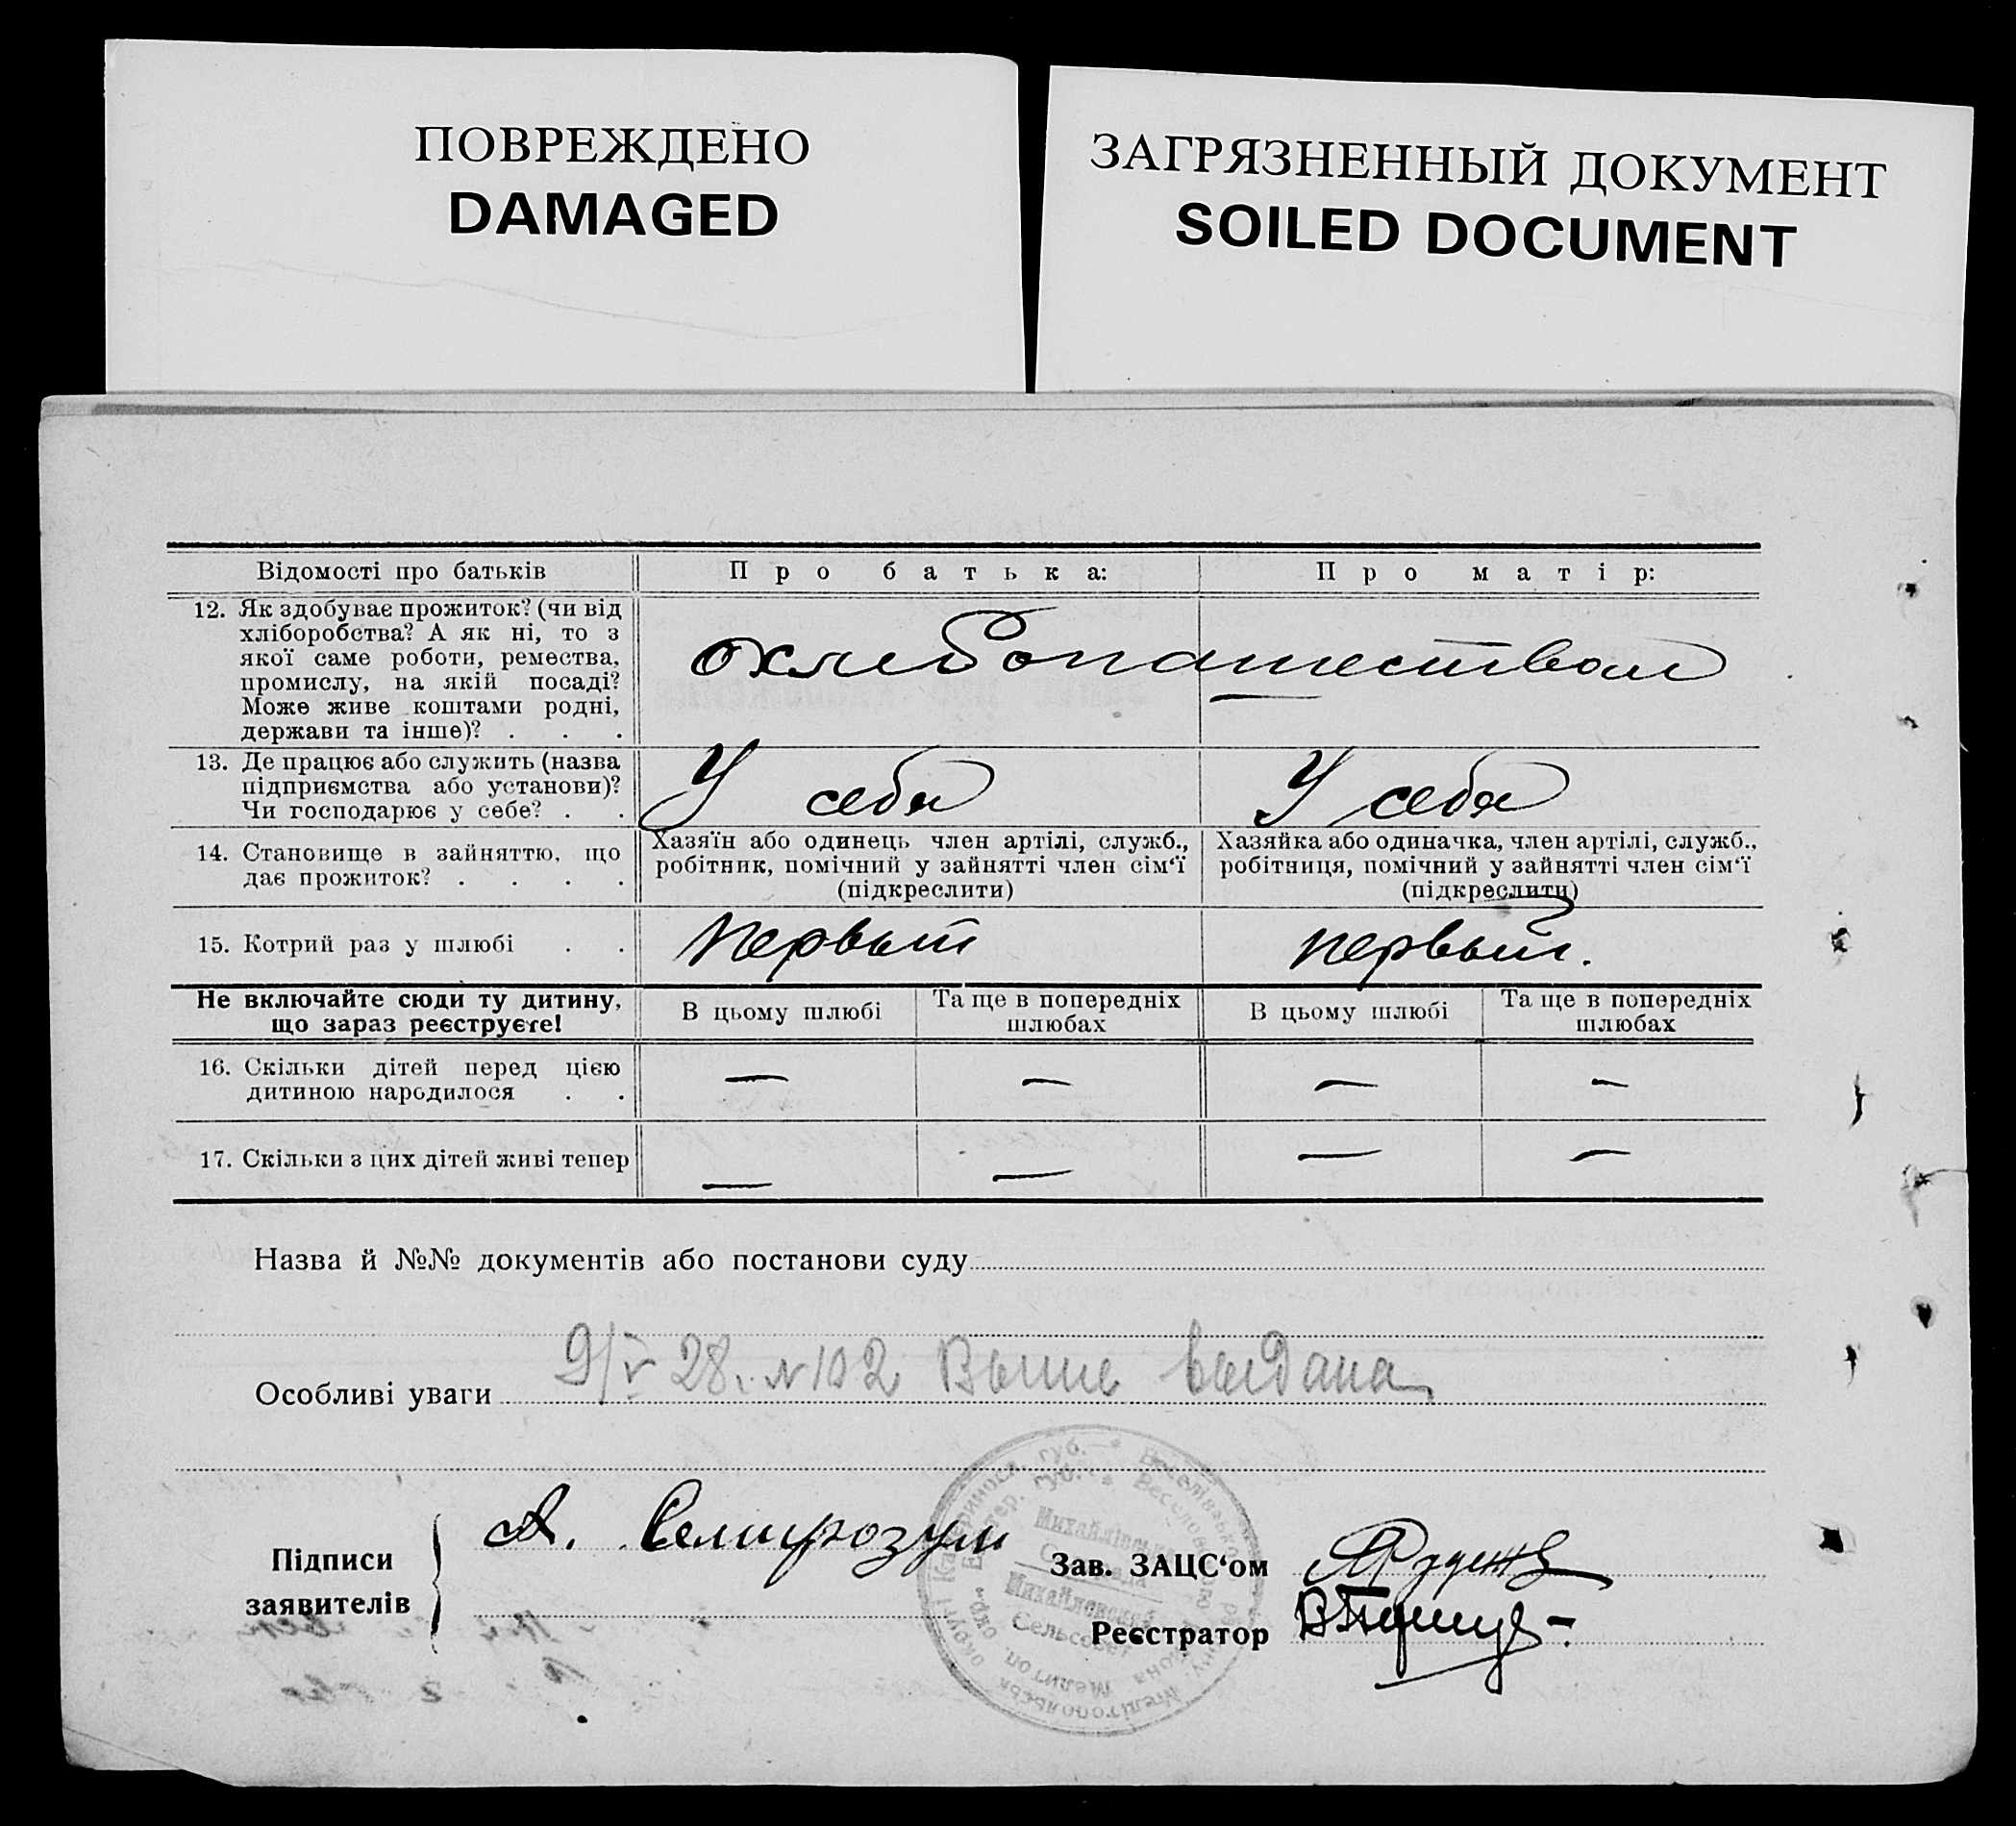 ПОВРЕЖДЕНО
DAMAGED
ЗАГРЯЗНЕННЫЙ ДОКУМЕНТ
SOILED DOCUMENT
Відомості про батьків
Про батька:
Про матір:
12. Як здобуває прожиток? (чи від
хліборобства? А як ні, то з
якої саме роботи, ремества,
промислу, на якій посаді?
Може живе коштами родні,
держави та інше)? . . .
охлибопашеством
13. Де працює або служить (назва
підприємства або установи)?
Чи господарює у себе? . .
У себя
У себя
14. Становище в зайняттю, що
дає прожиток? . . . .
Хазяїн або одинець член артілі, служб.,
робітник, помічний у зайнятті член сім‘ї
(підкреслити)
Хазяйка або одиначка, член артілі, служб.,
робітниця, помічний у зайнятті член сім‘ї
(підкреслити)
15. Котрий раз у шлюбі . .
первый
первый.
Не включайте сюди ту дитину,
що зараз реєструєте!
В цьому шлюбі
Та ще в попередніх
шлюбах
В цьому шлюбі
Та ще в попередніх
шлюбах
16. Скільки дітей перед цією
дитиною народилося . .
— — — —
17. Скільки з цих дітей живі тепер
— — — —
Назва й №№ документів або постанови суду
Особливі уваги 9/V 28. №102 Выпис выдана
Підписи
заявителів
А. Семирозум
Зав. ЗАЦС‘ом
Реєстратор
Катериносл. губ. * Веселівського
Екатер. губ. Веселовского
Михайлівська
Сільрада
Михайловский
Сельсовет
Мелитоп. окр.
Мелітопольськ. округи